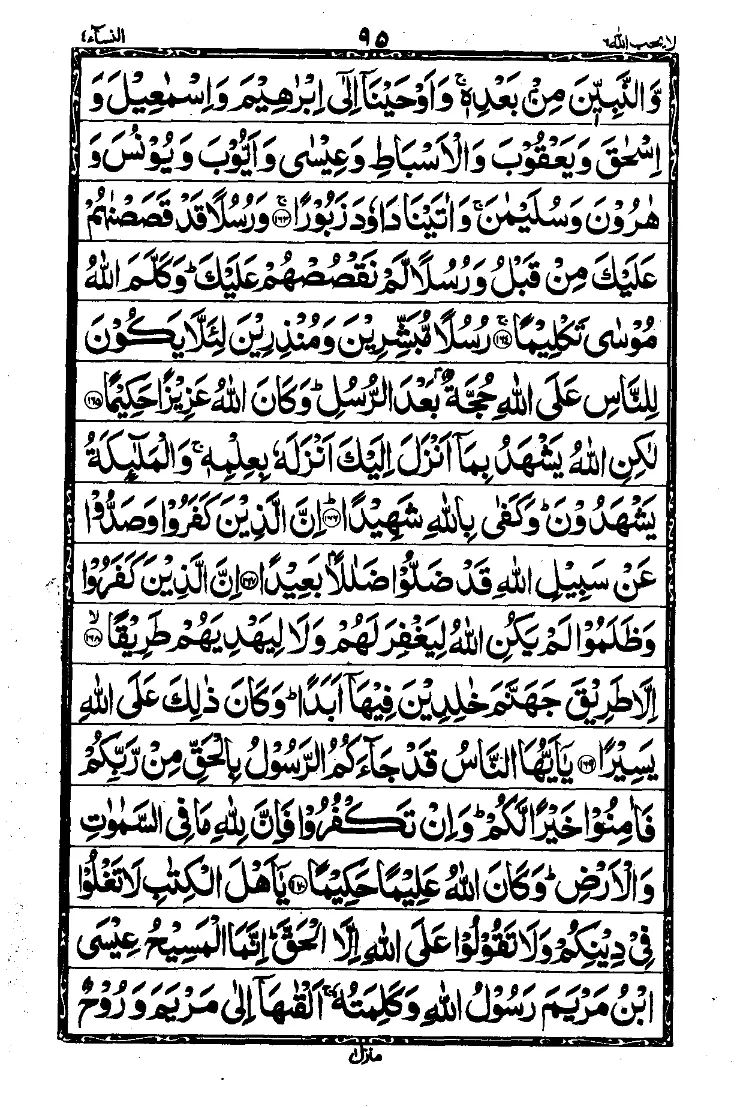 لا يحب الله ٦ ٩٥ النسآء ٤
وَّالنَّبِيّٖنَ مِنْۢ بَعْدِهٖ ۚ وَاَوْحَيْنَاۤ اِلٰۤى اِبْرٰهِيْمَ وَاِسْمٰعِيْلَ وَ
اِسْحٰقَ وَيَعْقُوْبَ وَالْاَسْبَاطِ وَعِيْسٰى وَاَيُّوْبَ وَيُوْنُسَ وَ
هٰرُوْنَ وَسُلَيْمٰنَ ۚ وَاٰتَيْنَا دَاوٗدَ زَبُوْرًا ۚ﴿۱۶۳﴾ وَرُسُلًا قَدْ قَصَصْنٰهُمْ
عَلَيْكَ مِنْ قَبْلُ وَرُسُلًا لَّمْ نَقْصُصْهُمْ عَلَيْكَ ؕ وَكَلَّمَ اللّٰهُ
مُوْسٰى تَكْلِيْمًا ۚ﴿۱۶۴﴾ رُسُلًا مُّبَشِّرِيْنَ وَمُنْذِرِيْنَ لِئَلَّا يَكُوْنَ
لِلنَّاسِ عَلَى اللّٰهِ حُجَّةٌۢ بَعْدَ الرُّسُلِ ؕ وَكَانَ اللّٰهُ عَزِيْزًا حَكِيْمًا ﴿۱۶۵﴾
لٰكِنِ اللّٰهُ يَشْهَدُ بِمَاۤ اَنْزَلَ اِلَيْكَ اَنْزَلَهٗ بِعِلْمِهٖ ۚ وَالْمَلٰٓئِكَةُ
يَشْهَدُوْنَ ؕ وَكَفٰى بِاللّٰهِ شَهِيْدًا ؕ﴿۱۶۶﴾ اِنَّ الَّذِيْنَ كَفَرُوْا وَصَدُّوْا
عَنْ سَبِيْلِ اللّٰهِ قَدْ ضَلُّوْا ضَلٰلًاۢ بَعِيْدًا ﴿۱۶۷﴾ اِنَّ الَّذِيْنَ كَفَرُوْا
وَظَلَمُوْا لَمْ يَكُنِ اللّٰهُ لِيَغْفِرَ لَهُمْ وَلَا لِيَهْدِيَهُمْ طَرِيْقًا ۙ﴿۱۶۸﴾
اِلَّا طَرِيْقَ جَهَنَّمَ خٰلِدِيْنَ فِيْهَاۤ اَبَدًا ؕ وَكَانَ ذٰلِكَ عَلَى اللّٰهِ
يَسِيْرًا ﴿۱۶۹﴾ يٰۤاَيُّهَا النَّاسُ قَدْ جَآءَكُمُ الرَّسُوْلُ بِالْحَقِّ مِنْ رَّبِّكُمْ
فَاٰمِنُوْا خَيْرًا لَّكُمْ ؕ وَاِنْ تَكْفُرُوْا فَاِنَّ لِلّٰهِ مَا فِى السَّمٰوٰتِ
وَالْاَرْضِ ؕ وَكَانَ اللّٰهُ عَلِيْمًا حَكِيْمًا ﴿۱۷۰﴾ يٰۤاَهْلَ الْكِتٰبِ لَا تَغْلُوْا
فِىْ دِيْنِكُمْ وَلَا تَقُوْلُوْا عَلَى اللّٰهِ اِلَّا الْحَقَّ ؕ اِنَّمَا الْمَسِيْحُ عِيْسَى
ابْنُ مَرْيَمَ رَسُوْلُ اللّٰهِ وَكَلِمَتُهٗ ۚ اَلْقٰىهَاۤ اِلٰى مَرْيَمَ وَرُوْحٌ
منزل